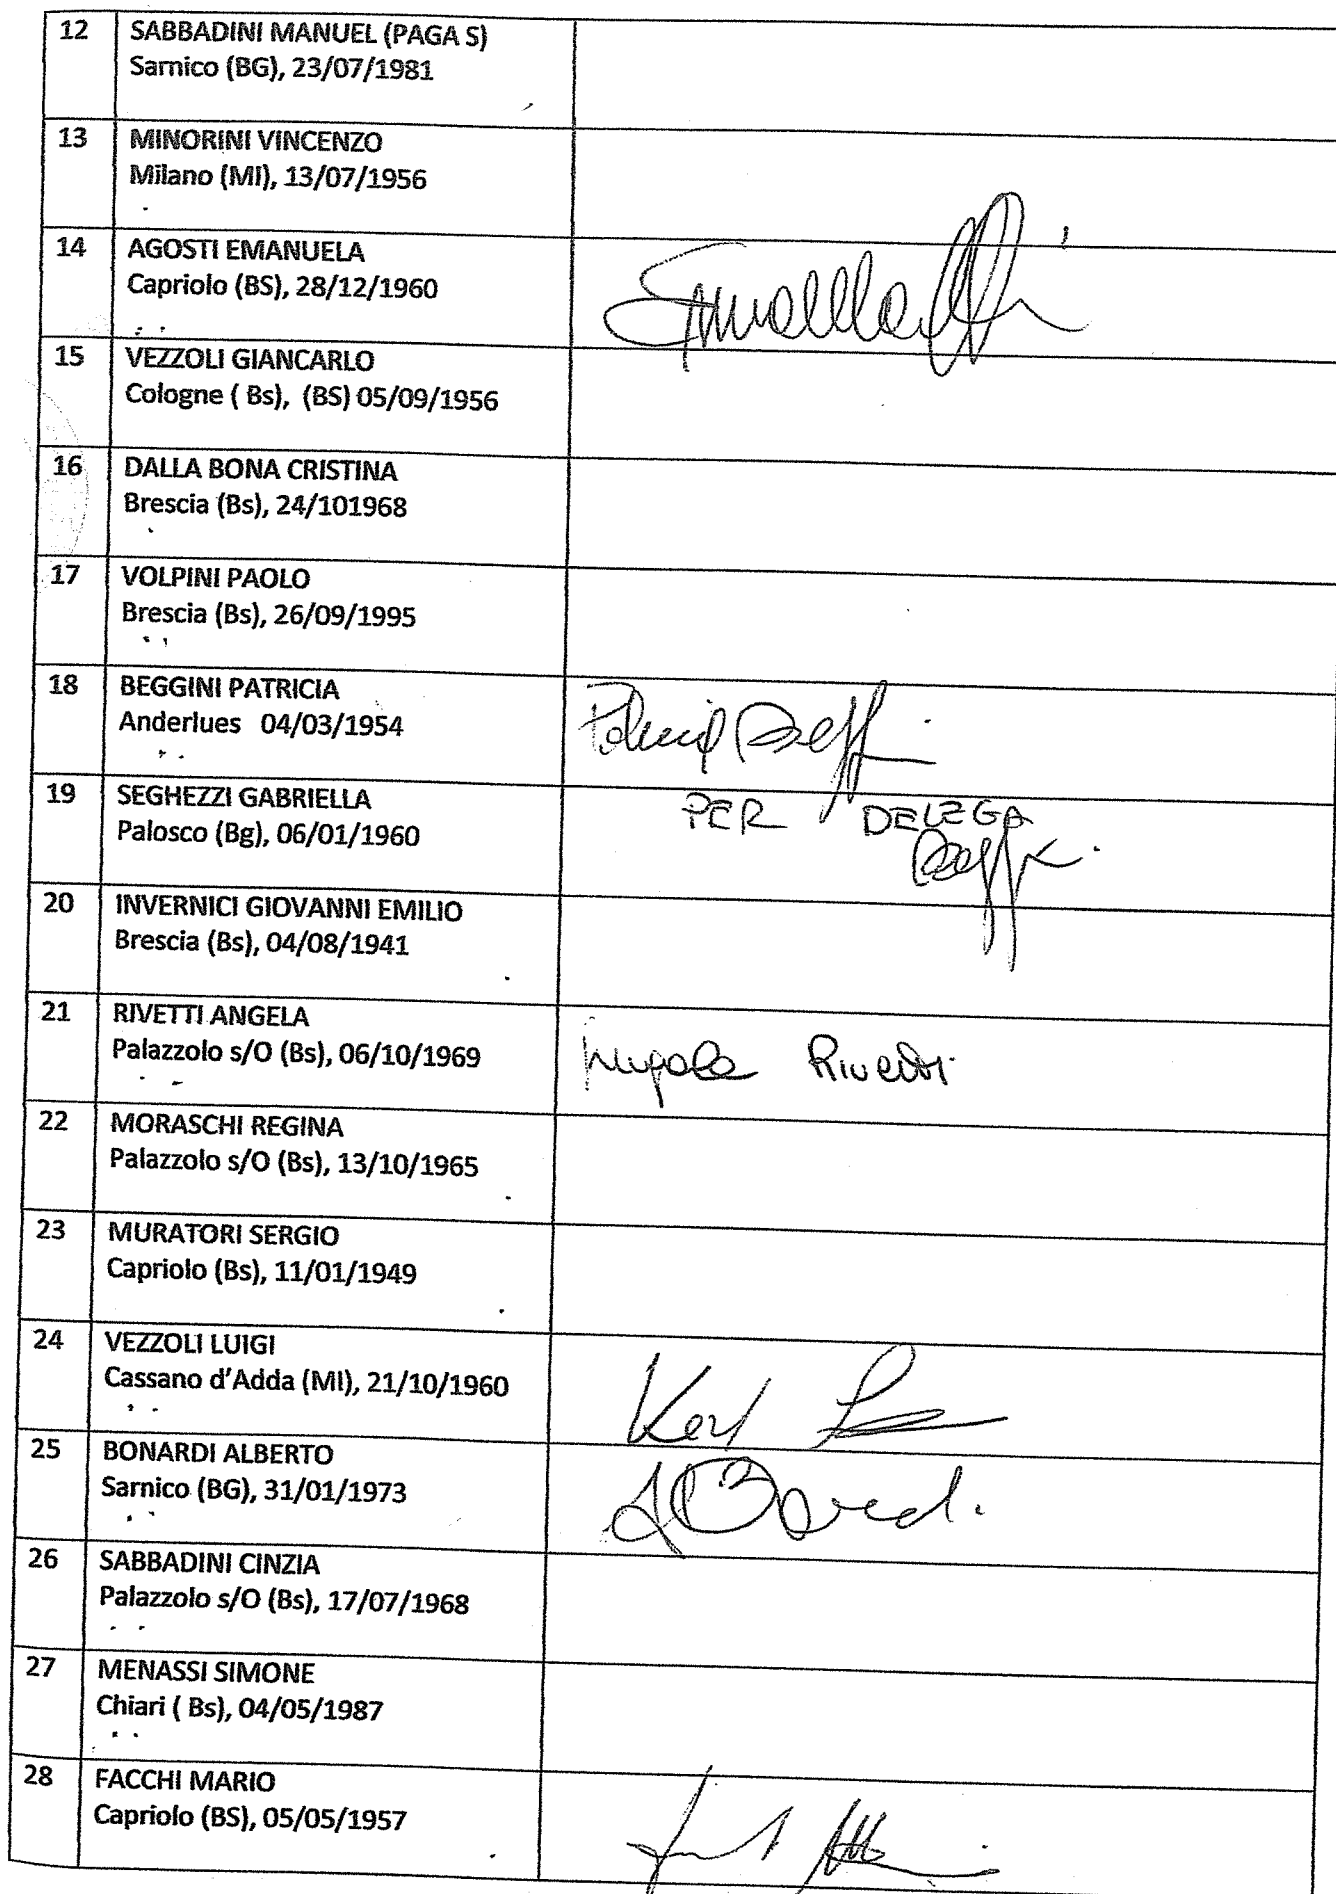 12 SABBADINI MANUEL (PAGA S)
Sarnico (BG), 23/07/1981
13 MINORINI VINCENZO
Milano (MI), 13/07/1956
14 AGOSTI EMANUELA
Capriolo (BS), 28/12/1960
15 VEZZOLI GIANCARLO
Cologne ( Bs), (BS) 05/09/1956
16 DALLA BONA CRISTINA
Brescia (Bs), 24/101968
17 VOLPINI PAOLO
Brescia (Bs), 26/09/1995
18 BEGGINI PATRICIA
Anderlues 04/03/1954
19 SEGHEZZI GABRIELLA PER DELEGA
Palosco (Bg), 06/01/1960
20 INVERNICI GIOVANNI EMILIO
Brescia (Bs), 04/08/1941
21 RIVETTI ANGELA
Palazzolo s/O (Bs), 06/10/1969 Angela Rivetti
22 MORASCHI REGINA
Palazzolo s/O (Bs), 13/10/1965
23 MURATORI SERGIO
Capriolo (Bs), 11/01/1949
24 VEZZOLI LUIGI
Cassano d'Adda (MI), 21/10/1960
25 BONARDI ALBERTO
Sarnico (BG), 31/01/1973
26 SABBADINI CINZIA
Palazzolo s/O (Bs), 17/07/1968
27 MENASSI SIMONE
Chiari ( Bs), 04/05/1987
28 FACCHI MARIO
Capriolo (BS), 05/05/1957